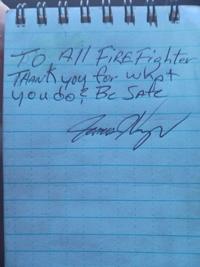 TO All FIREFighter
THANK you for what
you do & BE SAFE